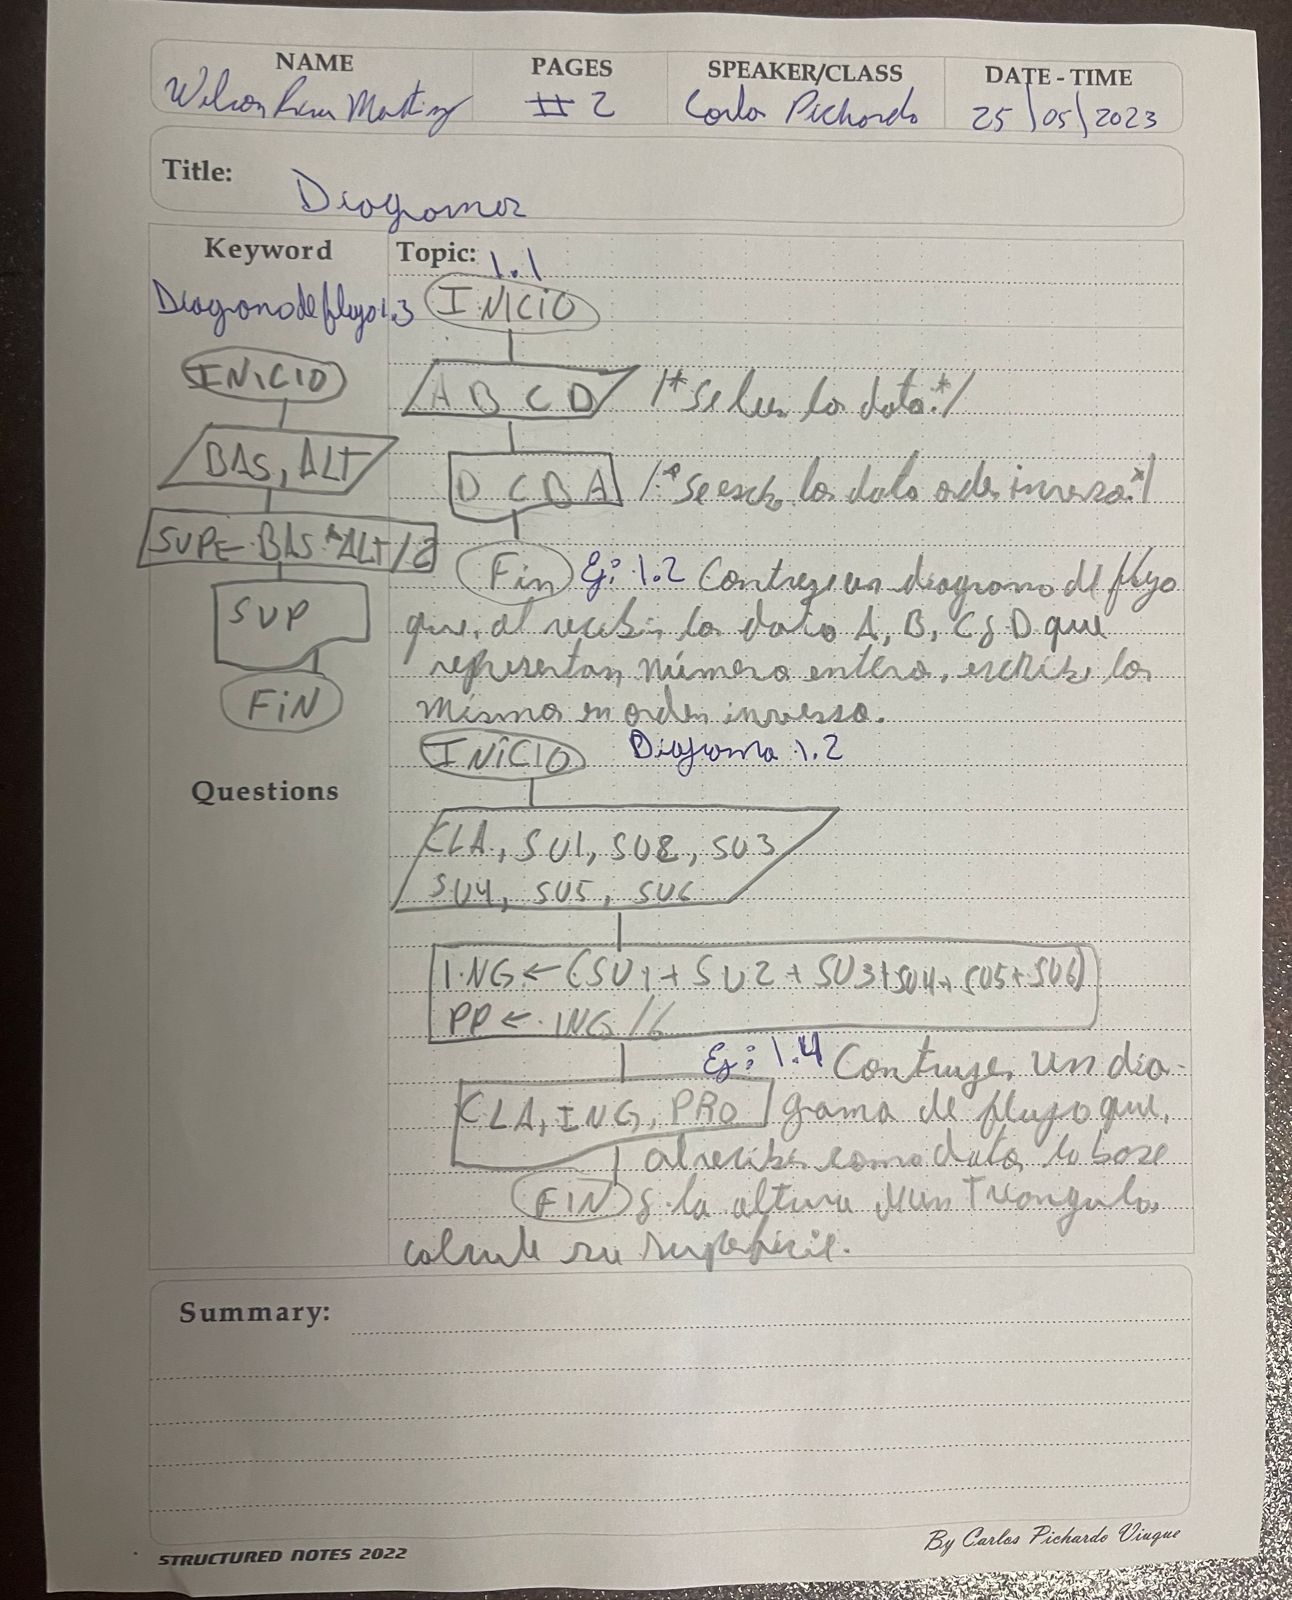 NAME
PAGES
SPEAKER/CLASS
DATE - TIME
Wilson
Martinez
# 2
Carlos Pichardo
25/05/2023
Title:
Diagramas
Keyword
Diagrama de flujo 1.3
INICIO
BAS, ALT
SUP← BAS * ALT / 2
SUP
FiN
Questions
Topic: 1.1
INICIO
A B C D /* Se leen los datos */
D C B A /* Se escb los dato orden inversa */
Fin Ej: 1.2 Contruye un diagrama de flujo
que, al recibir los datos A, B, C y D que
representan número entero, escribe los
mismo en orden inverso.
INICIO Diagrama 1.2
CLA, SU1, SU2, SU3
SU4, SU5, SU6
ING ← (SU1 + SU2 + SU3 + SU4 + SU5 + SU6)
PP ← ING / 6
Ej: 1.4 Contruye, un dia-
CLA, ING, PRO grama de flujo que,
al recibir como datos la base
FIN y la altura de un Triangulo,
calcule su superficie.
Summary:
STRUCTURED NOTES 2022
By Carlos Pichardo Viuque